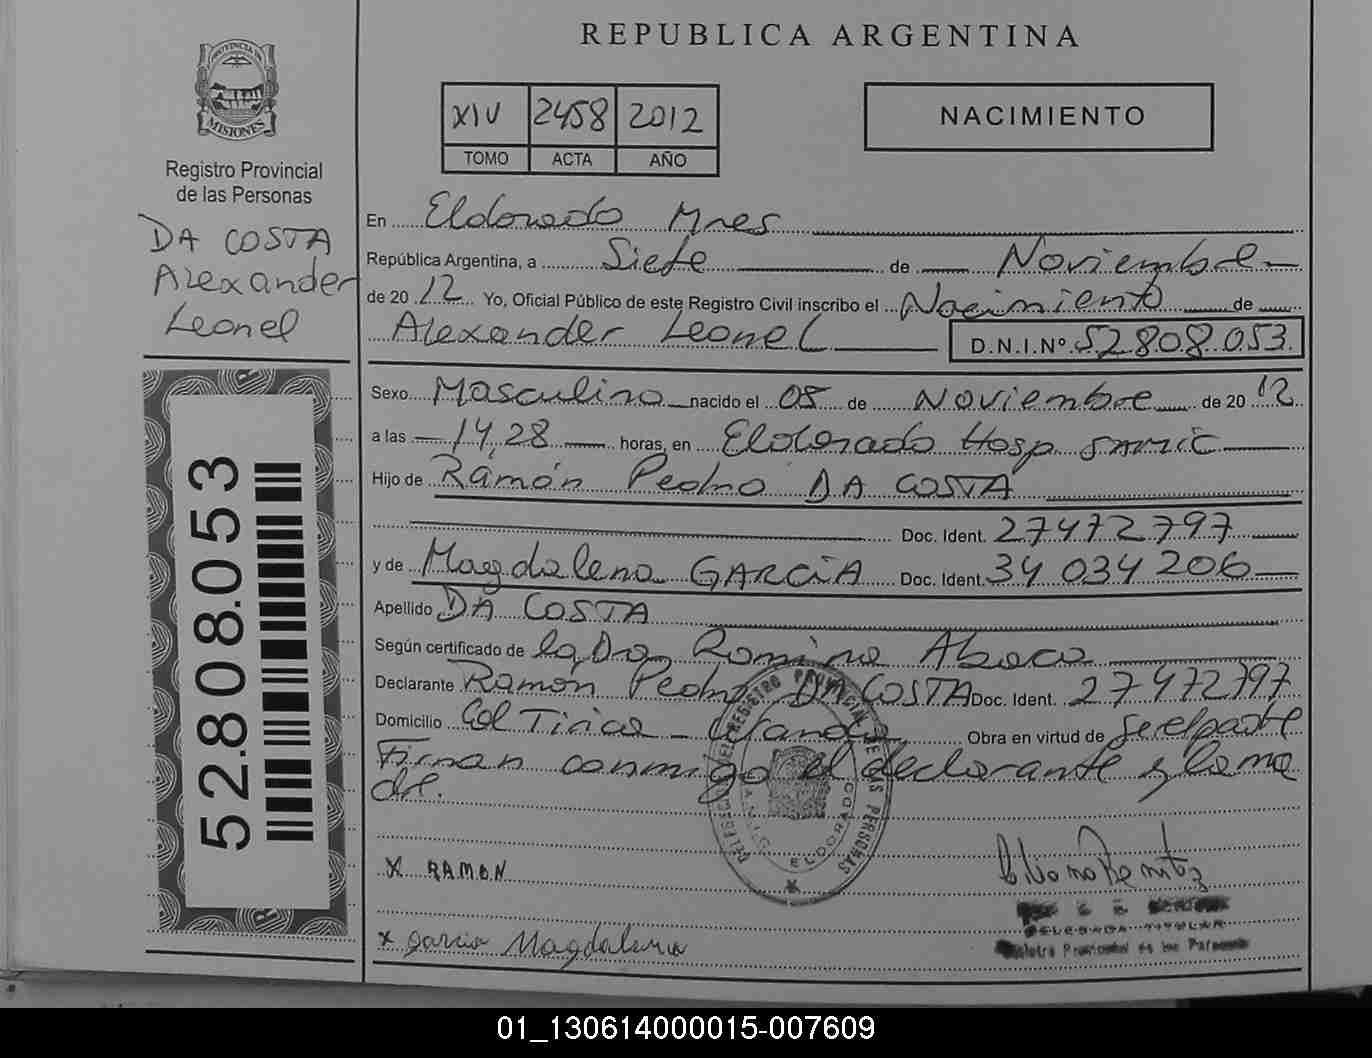 REPUBLICA ARGENTINA
PROVINCIA DE
MISIONES
Registro Provincial
de las Personas
DA COSTA
Alexander
Leonel
52.808.053
XIV 2458 2012
TOMO ACTA AÑO
NACIMIENTO
En Eldorado Mnes
República Argentina, a Siete de Noviembre
de 20 12 Yo, Oficial Público de este Registro Civil inscribo el Nacimiento de
Alexander Leonel D.N.I.Nº 52808053
Sexo Masculino nacido el 05 de Noviembre de 20 12
a las 14,28 horas, en Eldorado Hosp SAMIC
Hijo de Ramón Pedro DA COSTA
Doc. Ident. 27472797
y de Magdalena GARCIA Doc. Ident. 34 034 206
Apellido DA COSTA
Según certificado de la Dra Romina
Declarante Ramón Pedro DA COSTA Doc. Ident. 27472797
Domicilio Col Tirica Obra en virtud de ser el padre
Firman conmigo el declarante y la ma
dre.
REGISTRO PROVINCIAL DE LAS PERSONAS
ELDORADO
X RAMON
x Garcia Magdalena
DELEGADA TITULAR
Registro Provincial de las Personas
01_130614000015-007609